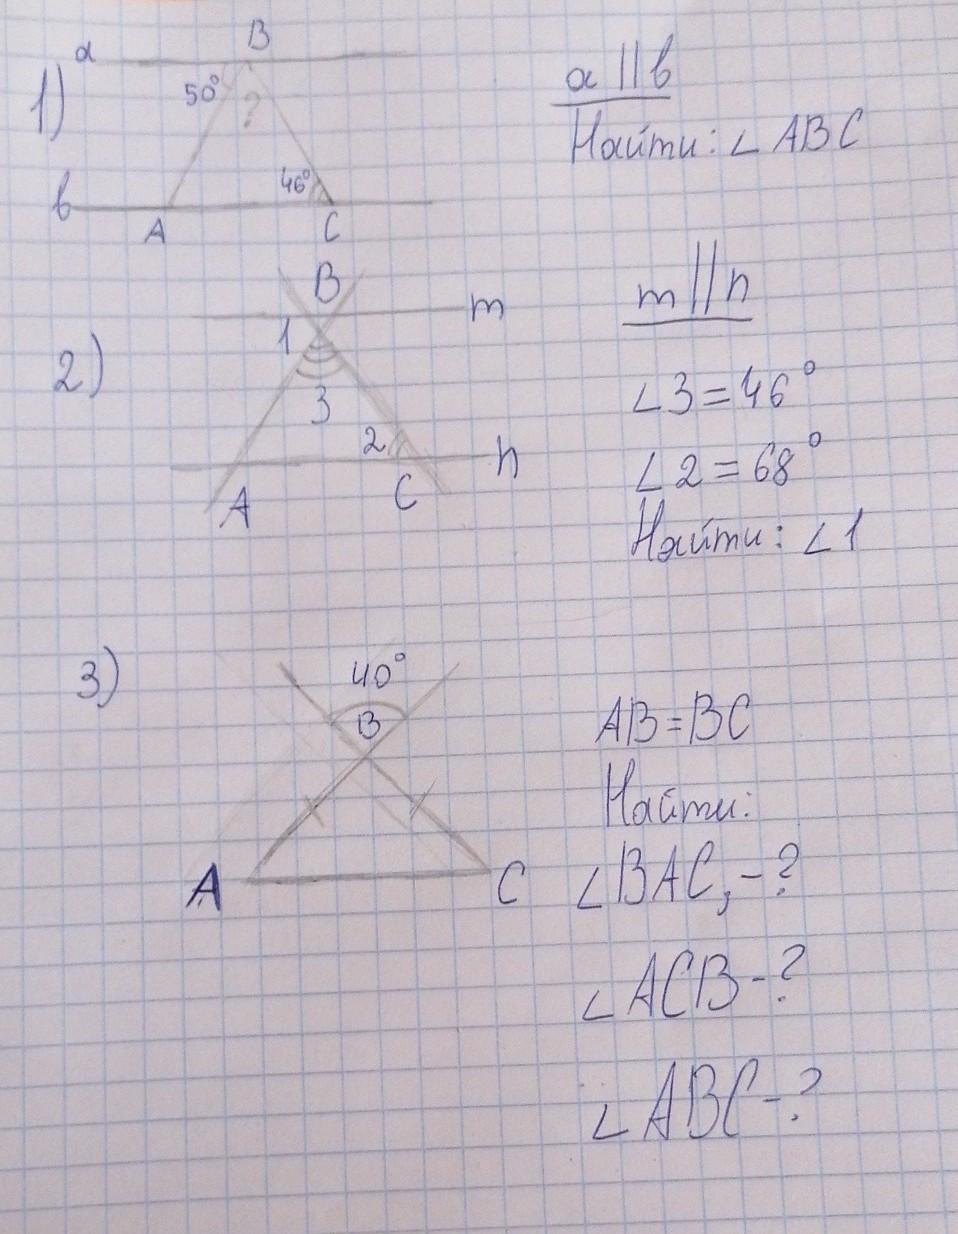 1)
a
B
50°
?
46°
в
A
C
a || в
Найти: ∠ ABC
2)
B
m
1
3
2
n
A
C
m || n
∠3 = 46°
∠2 = 68°
Найти: ∠1
3)
40°
B
A
C
AB = BC
Найти:
∠BAC, - ?
∠ACB - ?
∠ABC - ?